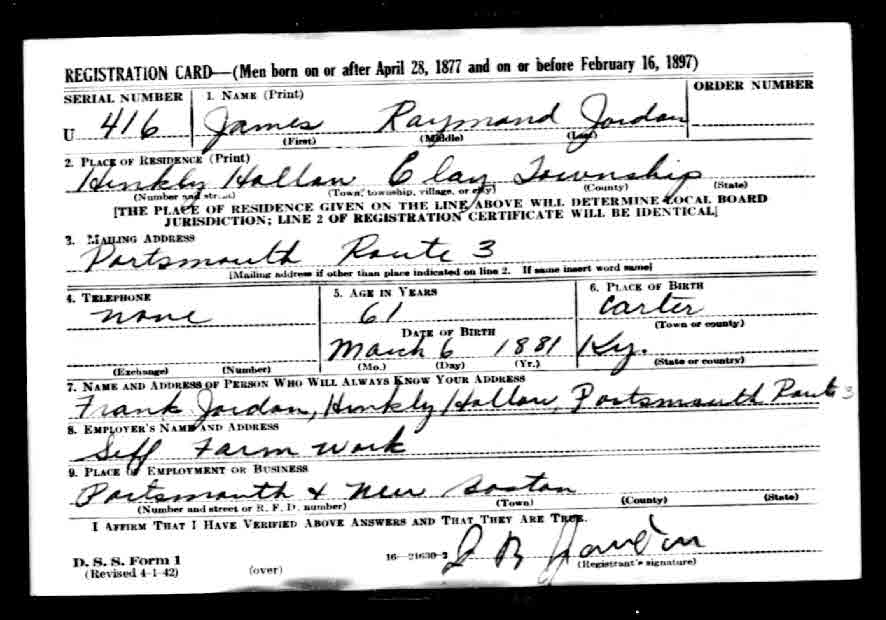 REGISTRATION CARD—(Men born on or after April 28, 1877 and on or before February 16, 1897)
SERIAL NUMBER 1. NAME (Print) ORDER NUMBER
U 416 James Raymond Jordan
(First) (Middle) (Last)
2. PLACE OF RESIDENCE (Print)
Hinkly Hollow Clay Township
(Number and street) (Town, township, village, or city) (County) (State)
[THE PLACE OF RESIDENCE GIVEN ON THE LINE ABOVE WILL DETERMINE LOCAL BOARD
JURISDICTION; LINE 2 OF REGISTRATION CERTIFICATE WILL BE IDENTICAL]
3. MAILING ADDRESS
Portsmouth Route 3
[Mailing address if other than place indicated on line 2. If same insert word same]
4. TELEPHONE 5. AGE IN YEARS 6. PLACE OF BIRTH
none 61 Carter
(Town or county)
DATE OF BIRTH
March 6 1881 Ky.
(Exchange) (Number) (Mo.) (Day) (Yr.) (State or country)
7. NAME AND ADDRESS OF PERSON WHO WILL ALWAYS KNOW YOUR ADDRESS
Frank Jordan, Hinkly Hollow, Portsmouth Route 3
8. EMPLOYER'S NAME AND ADDRESS
Self Farm work
9. PLACE OF EMPLOYMENT OR BUSINESS
Portsmouth & New Boston
(Number and street or R. F. D. number) (Town) (County) (State)
I AFFIRM THAT I HAVE VERIFIED ABOVE ANSWERS AND THAT THEY ARE TRUE.
D. S. S. Form 1
(Revised 4-1-42) (over) 16—21630-2 (Registrant's signature)